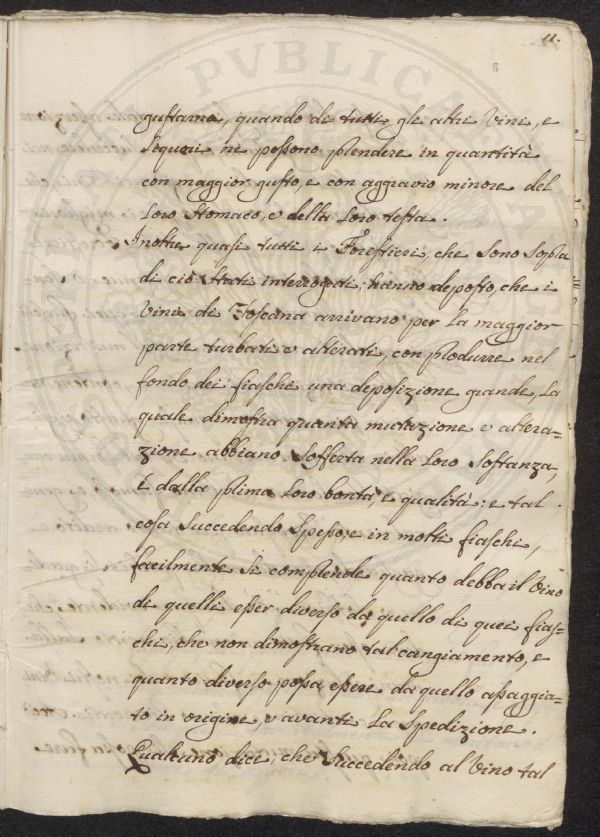 11.
gustarne, quando di tutti gli altri Vini, e
Seguiri ne possono prendere in quantità
con maggior gusto, e con aggravio minore del
Loro Stomaco, e della Loro testa.
Inoltre quasi tutti i Forestieri, che Sono Sopra
di ciò Stati interrogati, hanno deposto, che i
Vini di Toscana arrivano per La maggior
parte turbati e alterati, con produrre nel
fondo dei fiaschi una deposizione grande, La
quale dimostra quanta mutazione e altera=
zione abbiano Sofferta nella Loro Sostanza,
e dalla prima Loro bontà, e qualità: e tal
cosa Succedendo Spesso, e in molti fiaschi,
facilmente Si comprende quanto debba il Vino
di quelli esser diverso da quello di quei fias=
chi, che non dimostrano tal cangiamento, e
quanto diverso possa essere da quello assaggia=
to in origine, e avanti La Spedizione.
Qualcuno dice, che Succedendo al Vino tal
PVBLICA